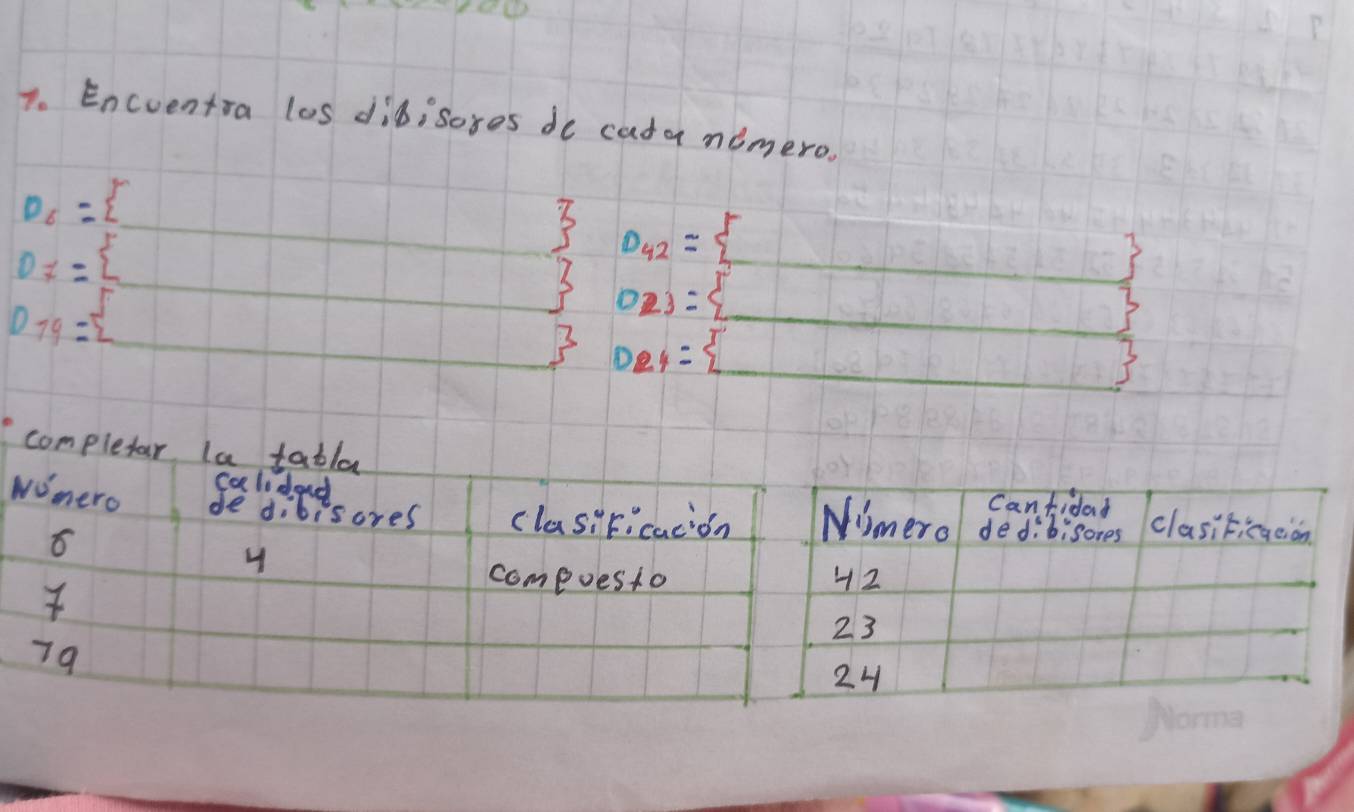 1. Encuentra los dibisores de cada número.
D6 = { }
D7 = { }
D79 = { }
D42 = { }
D23 = { }
D24 = { }
• completar la tabla
Número calidad de dibisores clasificación
6 4 compuesto
7
79
Número cantidad de dibisores clasificación
42
23
24
Norma